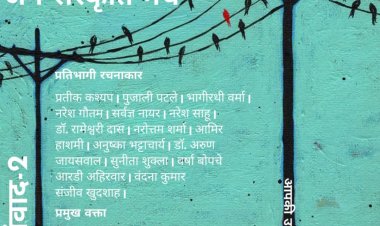 प्रतिभागी रचनाकार
प्रतीक कश्यप | पुजाली पटले | भागीरथी वर्मा |
नरेश गौतम | सर्वज्ञ नायर | नरेश साहू |
डॉ. रामेश्वरी दास | नरोत्तम शर्मा | आमिर
हाशमी | अनुष्का भट्टाचार्य | डॉ. अरुण
जायसवाल | सुनीता शुक्ला | दर्षा बोपचे
आरडी अहिरवार | वंदना कुमार
संजीव खुदशाह |
प्रमुख वक्ता
वाद-2
आपकी